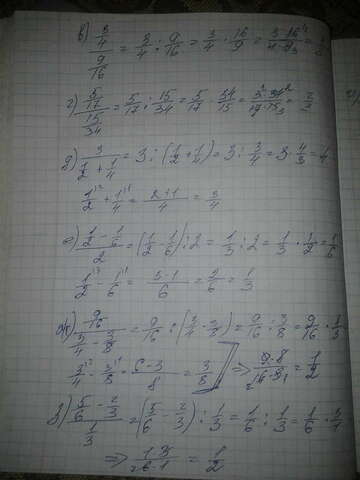 в) 3/4 / 9/16 = 3/4 : 9/16 = 3/4 · 16/9 = 3·16/4·9
г) 5/17 / 15/34 = 5/17 : 15/34 = 5/17 · 34/15 = 5·34/17·15 = 2/3
д) 3 / 1/2 + 1/4 = 3 : (1/2 + 1/4) = 3 : 3/4 = 3 · 4/3 = 4
1/2 + 1/4 = 2+1/4 = 3/4
е) 1/2 - 1/6 / 2 = (1/2 - 1/6) : 2 = 1/3 : 2 = 1/3 · 1/2 = 1/6
1/2 - 1/6 = 3-1/6 = 2/6 = 1/3
ж) 9/16 / 3/4 - 3/8 = 9/16 : (3/4 - 3/8) = 9/16 : 3/8 = 9/16 ·
3/4 - 3/8 = 6-3/8 = 3/8 ⇒ 9·8/16·3 = 1/2
з) 5/6 - 2/3 / 1/3 = (5/6 - 2/3) : 1/3 = 1/6 : 1/3 = 1/6 · 3/1
⇒ 1·3/6·1 = 1/2